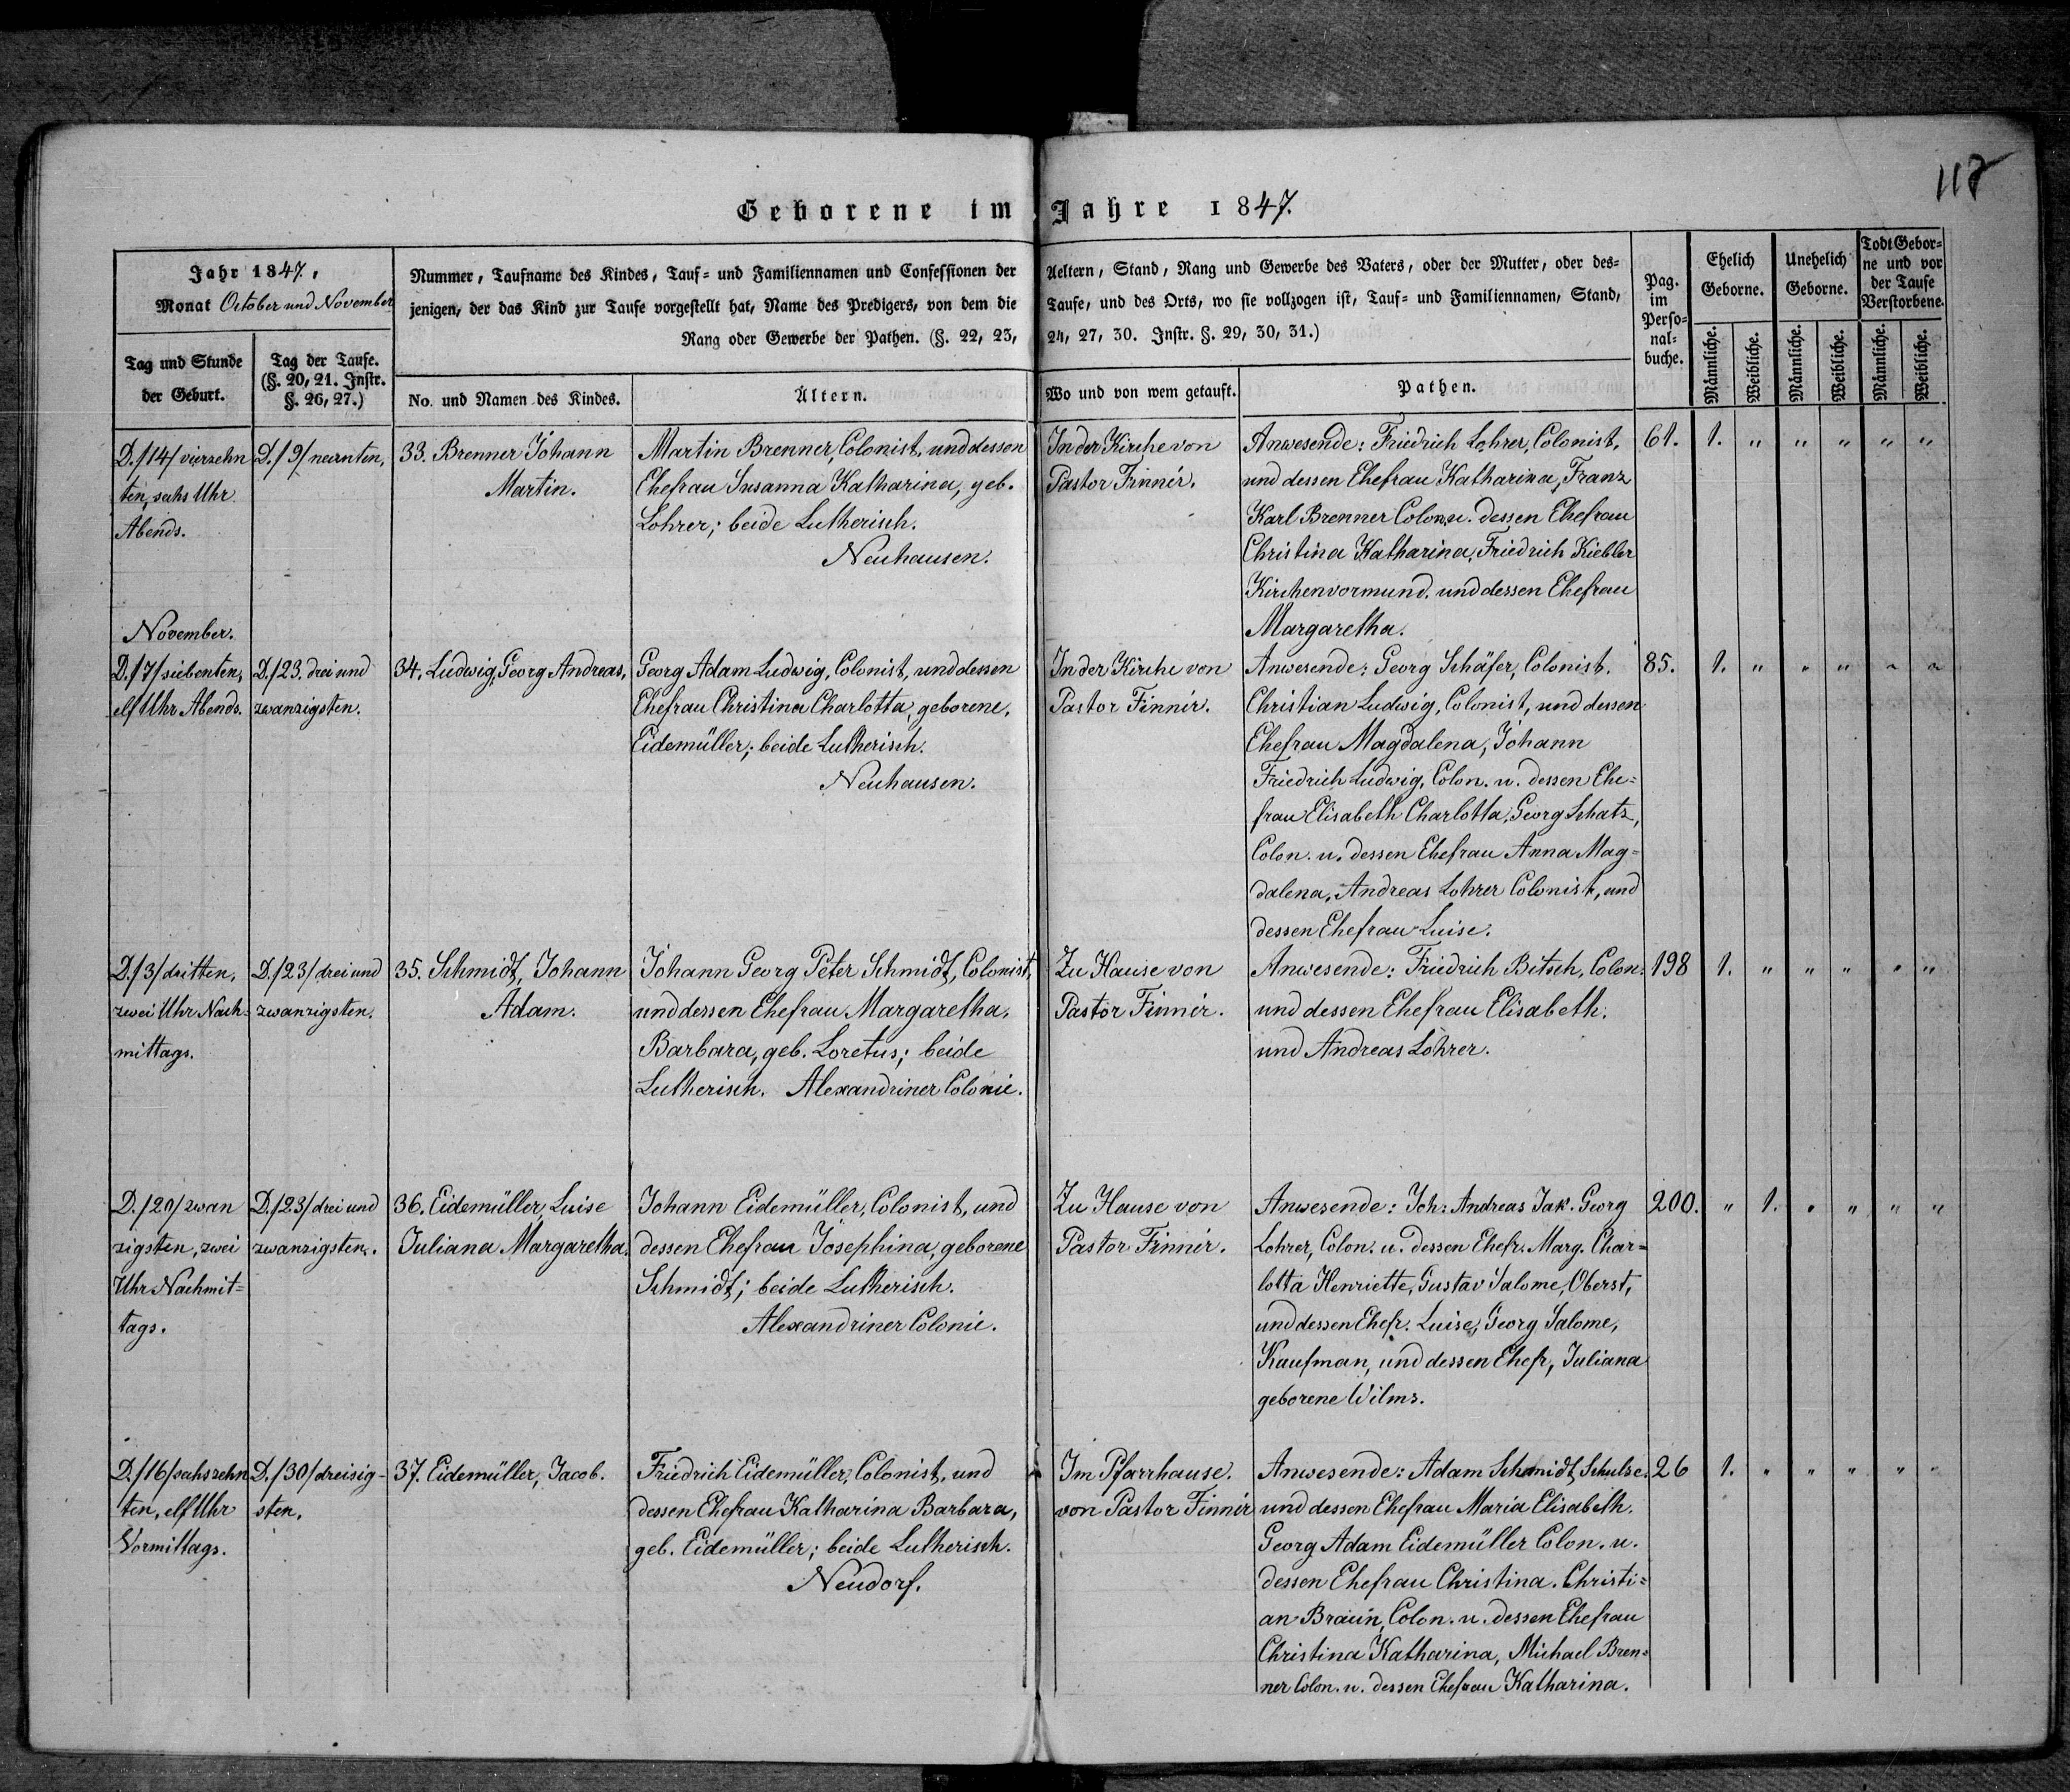 117
Geborene im Jahre 1847.
Jahr 1847,
Monat October und November
Tag und Stunde
der Geburt.
Tag der Taufe.
(§. 20, 21. Instr.
§. 26, 27.)
Nummer, Taufname des Kindes, Tauf- und Familiennamen und Confessionen der Aeltern, Stand, Rang und Gewerbe des Vaters, oder der Mutter, oder des-
jenigen, der das Kind zur Taufe vorgestellt hat, Name des Predigers, von dem die Taufe, und des Orts, wo sie vollzogen ist, Tauf- und Familiennamen, Stand,
Rang oder Gewerbe der Pathen. (§. 22, 23, 24, 27, 30. Instr. §. 29, 30, 31.)
No. und Namen des Kindes.
Ältern.
Wo und von wem getauft.
Pathen.
Pag.
im
Perso-
nal-
buche.
Ehelich
Geborne.
Unehelich
Geborne.
Todt Gebor-
ne und vor
der Taufe
Verstorbene.
Männliche.
Weibliche.
Männliche.
Weibliche.
Männliche.
Weibliche.
D. /14/ vierzehn
ten, sechs Uhr
Abends.
D. /9/ neunten,
33. Brenner Johann
Martin.
Martin Brenner, Colonist, und dessen
Ehefrau Susanna Katharina, geb.
Lohrer; beide Lutherisch.
Neuhausen.
In der Kirche von
Pastor Finnér.
Anwesende: Friedrich Lohrer, Colonist,
und dessen Ehefrau Katharina, Franz
Karl Brenner Colon. u. dessen Ehefrau
Christina Katharina, Friedrich Kiebler
Kirchenvormund. und dessen Ehefrau
Margaretha.
61. 1. " " " " "
November.
D. /7/ siebenten,
elf Uhr Abends.
D. /23. drei und
zwanzigsten.
34. Ludwig, Georg Andreas,
Georg Adam Ludwig, Colonist, und dessen
Ehefrau Christina Charlotta, geborene,
Eidemüller; beide Lutherisch.
Neuhausen.
In der Kirche von
Pastor Finnér.
Anwesende: Georg Schäfer, Colonist.
Christian Ludwig, Colonist, und dessen
Ehefrau Magdalena, Johann
Friedrich Ludwig, Colon. u. dessen Ehe=
frau Elisabeth Charlotta, Georg Schatz,
Colon. u. dessen Ehefrau Anna Mag=
dalena, Andreas Lohrer Colonist, und
dessen Ehefrau Luise.
85. 1. " " " " "
D. /3/ dritten,
zwei Uhr Nach=
mittags.
D. /23/ drei und
zwanzigsten.
35. Schmidt, Johann
Adam.
Johann Georg Peter Schmidt, Colonist,
und dessen Ehefrau Margaretha,
Barbara, geb. Loretus; beide
Lutherisch. Alexandriner Colonie.
Zu Hause von
Pastor Finnér.
Anwesende: Friedrich Betsch, Colon.
und dessen Ehefrau Elisabeth.
und Andreas Lohrer.
198 1. " " " " "
D. /20/ zwan
zigsten, zwei
Uhr Nachmit=
tags.
D. /23/ drei und
zwanzigsten.
36. Eidemüller, Luise
Juliana Margaretha.
Johann Eidemüller, Colonist, und
dessen Ehefrau Josephina, geborene
Schmidt; beide Lutherisch.
Alexandriner Colonie.
Zu Hause von
Pastor Finnér.
Anwesende: Joh: Andreas Jak. Georg
Lohrer, Colon. u. dessen Ehefr. Marg. Char=
lotta Henriette, Gustav Salome, Oberst,
und dessen Ehefr. Luise, Georg Salome,
Kaufman, und dessen Ehefr, Juliana
geborene Wilms.
200. " 1. " " " "
D. /16/ sechszehn
ten, elf Uhr
Vormittags.
D. /30/ dreisig-
sten,
37. Eidemüller, Jacob.
Friedrich Eidemüller, Colonist, und
dessen Ehefrau Katharina Barbara,
geb. Eidemüller; beide Lutherisch.
Neudorf.
Im Pfarrhause.
von Pastor Finnér
Anwesende: Adam Schmidt, Schulze.
und dessen Ehefrau Maria Elisabeth.
Georg Adam Eidemüller Colon. u.
dessen Ehefrau Christina. Christi=
an Braun, Colon. u. dessen Ehefrau
Christina Katharina, Michael Bren=
ner Colon. u. dessen Ehefrau Katharina.
26 1. " " " " "